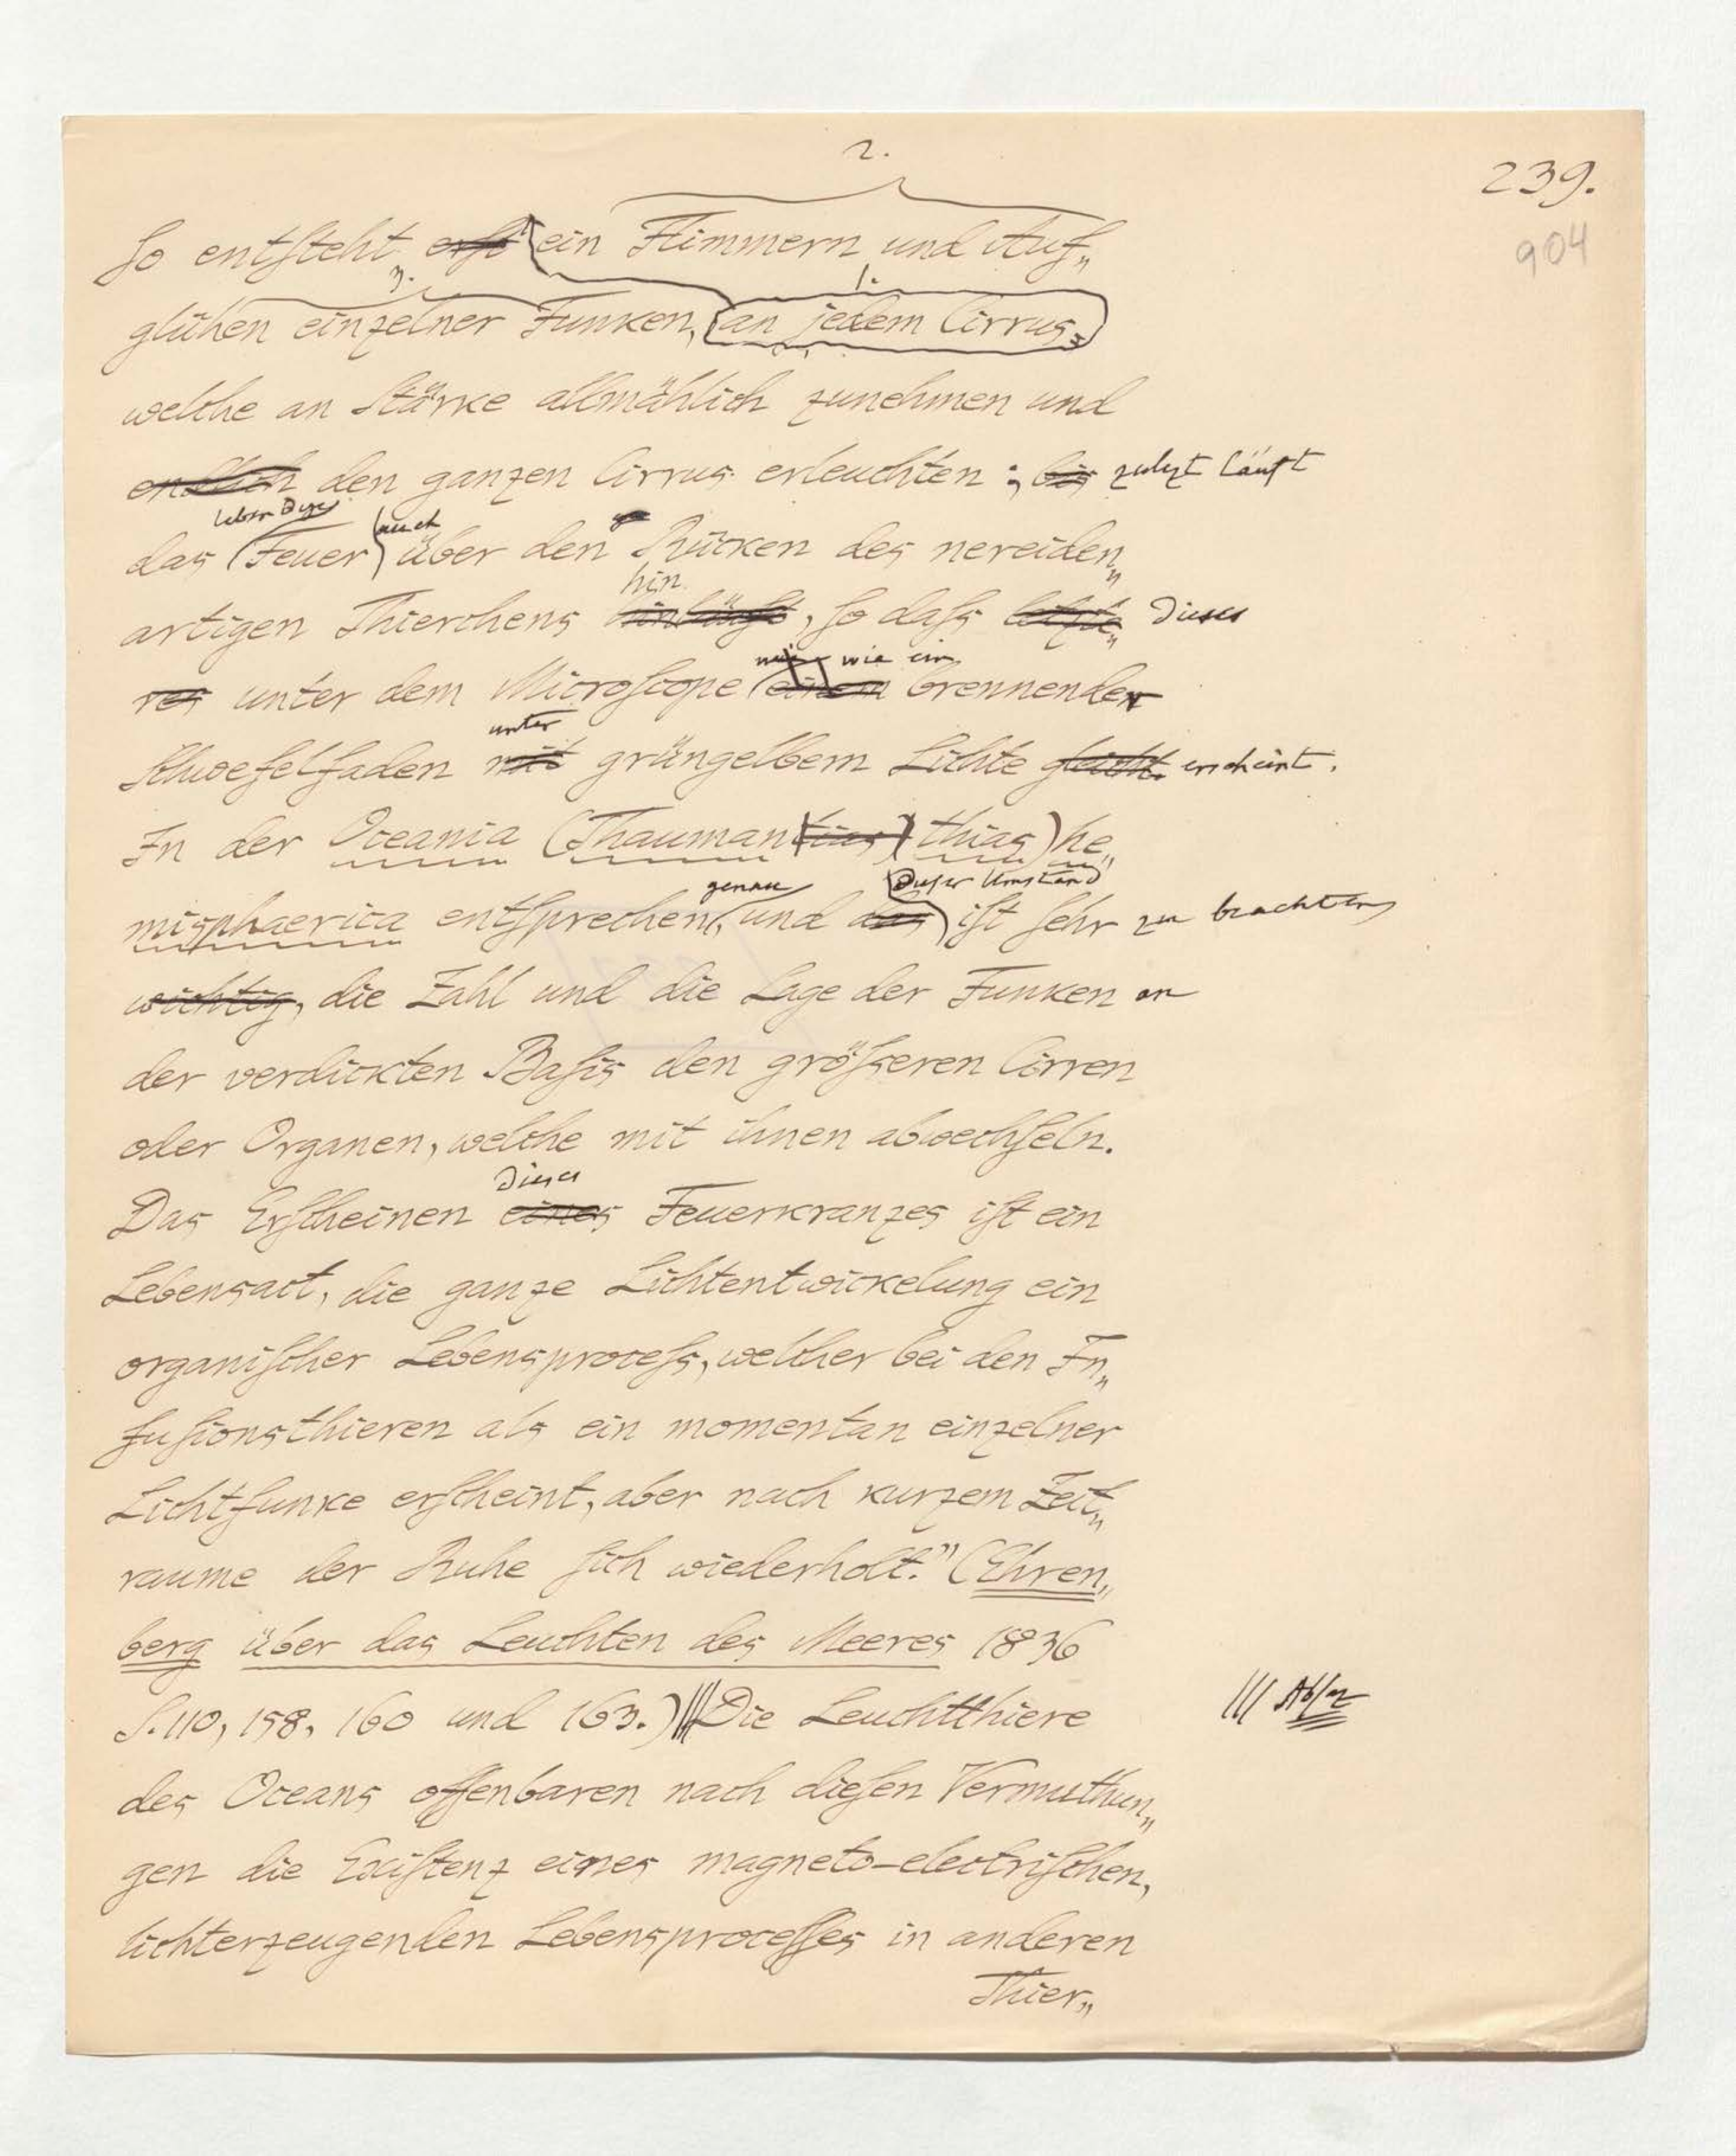 2.
239.
904
So entsteht erst ein Flimmern und Auf„
3. 1.
glühen einzelner Funken, an jedem Cirrus,
welche an Stärke allmählich zunehmen und
endlich den ganzen Cirrus erleuchten; bis zuletzt läuft
auch
das Feuer über den Rücken des nereiden„
hin
artigen Thierchens hinläuft, so dass letzte„ dieses
wie ein
res unter dem Microscope einem brennender
unter
Schwefelfaden mit grüngelbem Lichte gleicht. erscheint.
In der Oceania (Thauman tias) thias) he„
genau dieser Umstand
misphaerica entsprechen, und das ist sehr zu beachten
wichtig, die Zahl und die Lage der Funken an
der verdickten Basis den grösseren Cirren
oder Organen, welche mit ihnen abwechseln.
dieses
Das Erscheinen eines Feuerkranzes ist ein
Lebensact, die ganze Lichtentwickelung ein
organischer Lebensprocess, welcher bei den In„
fusionsthieren als ein momentan einzelner
Lichtfunke erscheint, aber nach kurzem Zeit„
raume der Ruhe sich wiederholt." (Ehren„
berg über das Leuchten des Meeres 1836
S. 110, 158, 160 und 163.) ||| Die Leuchtthiere ||| Absaz
des Oceans offenbaren nach diesen Vermuthun„
gen die Existenz eines magneto-electrischen,
lichterzeugenden Lebensprocesses in anderen
Thier„